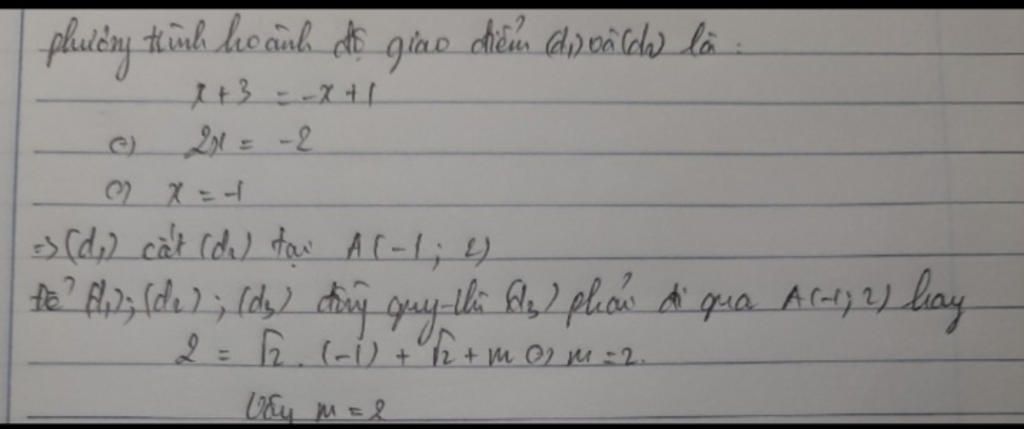 phương trình hoành độ giao điểm (d₁) và (d₂) là :
x + 3 = -x + 1
⇔ 2x = -2
⇔ x = -1
=> (d₁) cắt (d₂) tại A(-1; 2)
Để (d₁); (d₂); (d₃) đồng quy thì (d₃) phải đi qua A(-1; 2) hay
2 = √2 . (-1) + √2 + m ⇔ m = 2.
Vậy m = 2